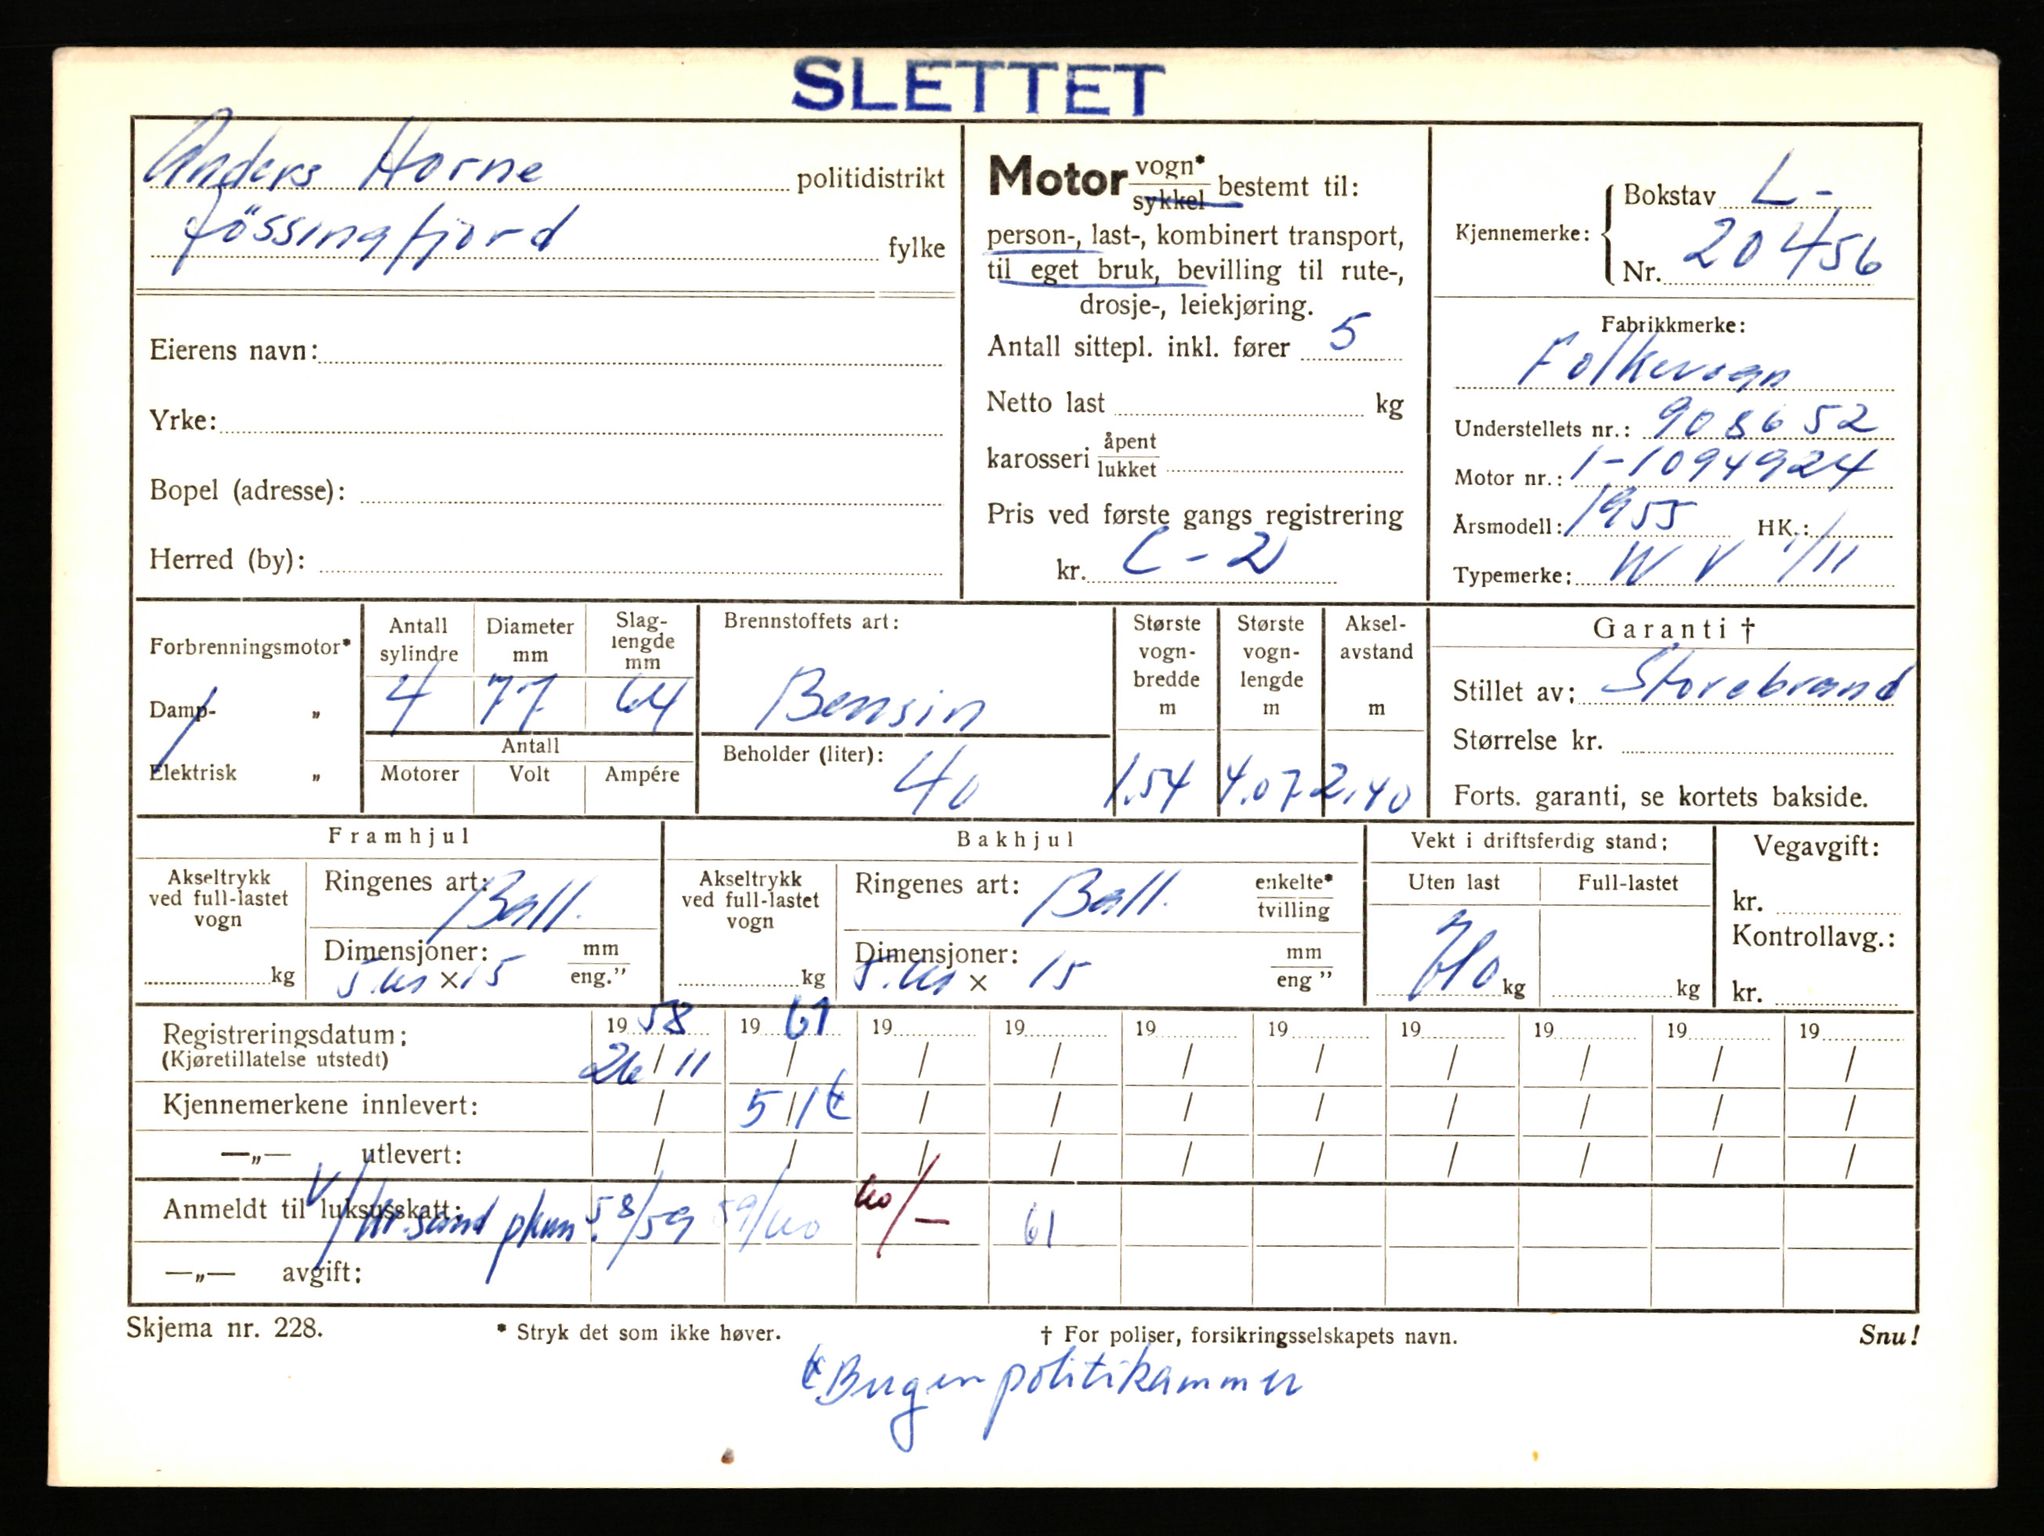 SLETTET
Anders Horne politidistrikt
Jössingfjord fylke
Eierens navn:
Yrke:
Bopel (adresse):
Herred (by):
Motor vogn* / sykkel bestemt til:
person-, last-, kombinert transport,
til eget bruk, bevilling til rute-,
drosje-, leiekjøring.
Antall sittepl. inkl. fører 5
Netto last kg
karosseri åpent / lukket
Pris ved første gangs registrering
kr. C-2
Kjennemerke: Bokstav L-
Nr. 20456
Fabrikkmerke:
Folkevogn
Understellets nr.: 908652
Motor nr.: 1-1094924
Årsmodell: 1955 HK.:
Typemerke: W V 1/11
Forbrenningsmotor*
Damp- „
Elektrisk „
Antall sylindre 4
Diameter mm 77
Slag-lengde mm 64
Antall
Motorer Volt Ampére
Brennstoffets art:
Bensin
Beholder (liter):
40
Største vogn-bredde m 1.54
Største vogn-lengde m 4.07
Aksel-avstand m 2.40
Garanti †
Stillet av: Storebrand
Størrelse kr.
Forts. garanti, se kortets bakside.
Framhjul
Akseltrykk ved full-lastet vogn kg
Ringenes art: Ball.
Dimensjoner: 5.60 × 15 mm / eng.”
Bakhjul
Akseltrykk ved full-lastet vogn kg
Ringenes art: Ball. enkelte* / tvilling
Dimensjoner: 5.60 × 15 mm / eng ”
Vekt i driftsferdig stand:
Uten last Full-lastet
710 kg kg
Vegavgift:
kr.
Kontrollavg.:
kr.
Registreringsdatum: 19 58 19 61 19 19 19 19 19 19 19 19
(Kjøretillatelse utstedt) 26/11 / / / / / / / / /
Kjennemerkene innlevert: / 5/1 / / / / / / / /
—„— utlevert: / / / / / / / / / /
Anmeldt til luksusskatt: 58/59 59/60 60/— 61
V/Kr.sand pkm.
—„— avgift:
Skjema nr. 228. * Stryk det som ikke høver. † For poliser, forsikringsselskapets navn. Snu!
Bergen politikammer